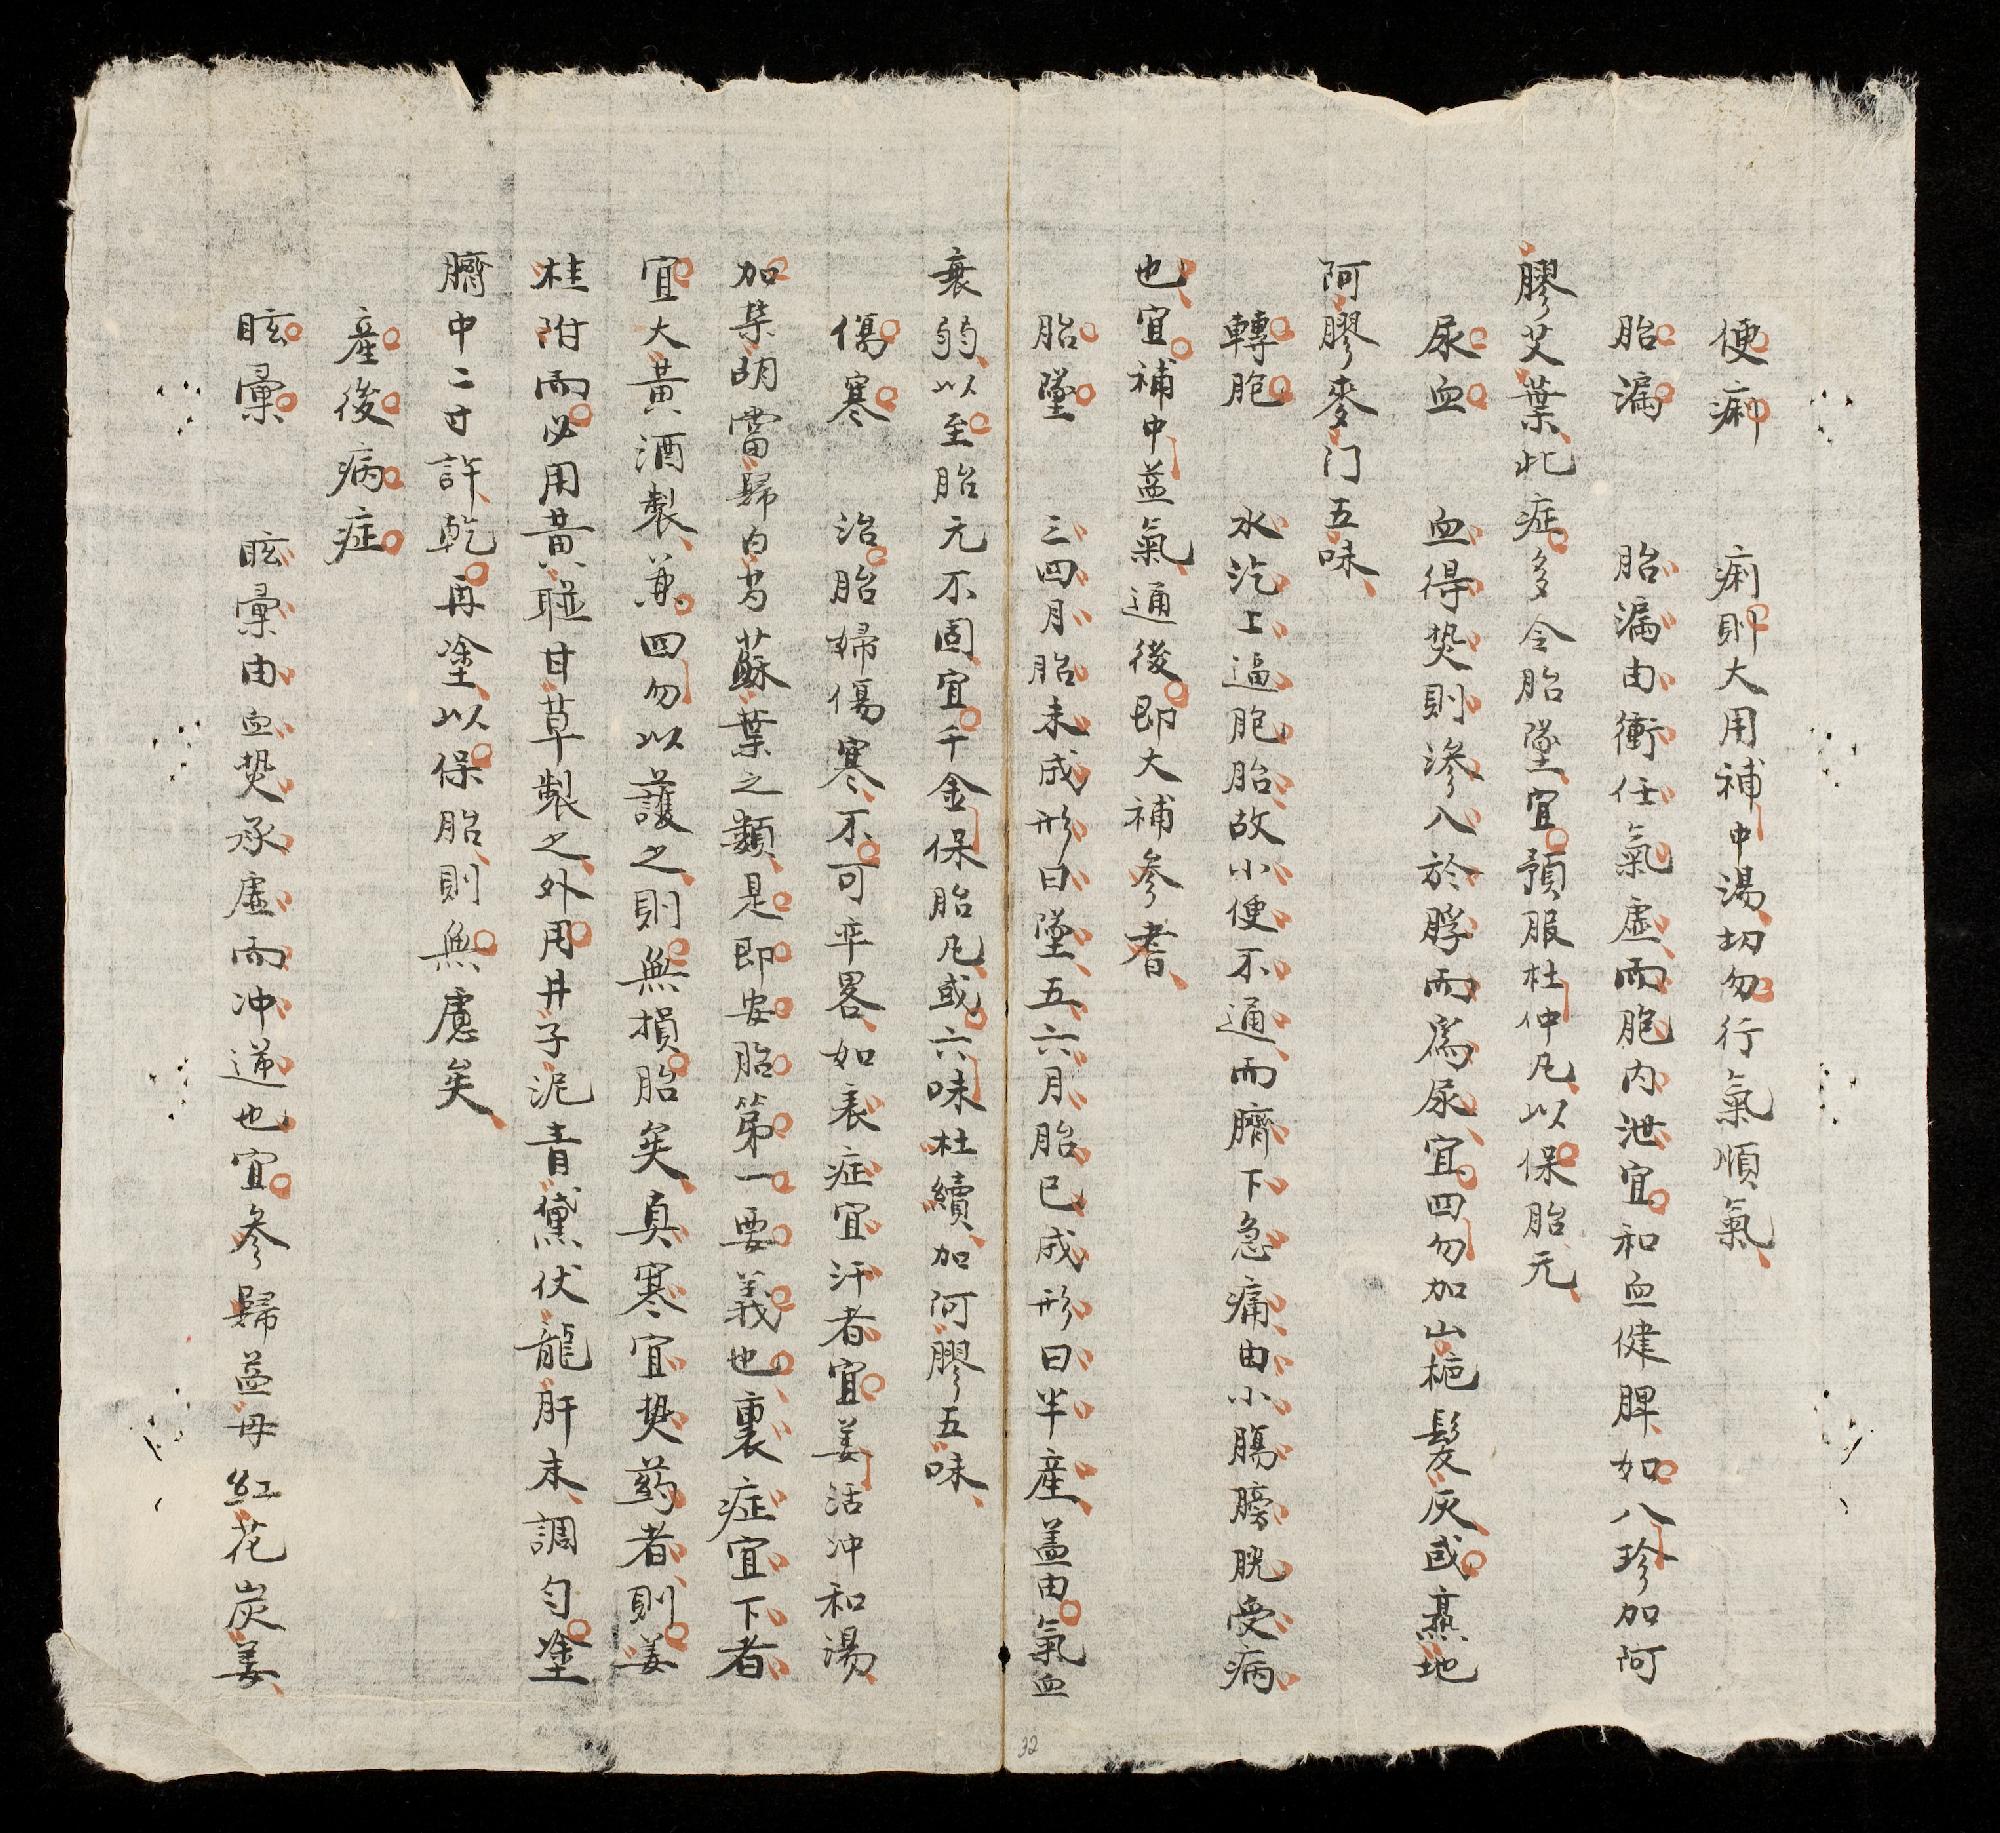 便痢　痢則大用補中湯切勿行氣順氣
胎漏　胎漏由衝任氣虛而胞内泄宜和血健脾如八珍加阿
膠艾葉此症多令胎墜宜預服杜仲凡以保胎元
尿血　血得𤍠則滲入於脬而爲尿宜四勿加山梔髮灰或熟地
阿膠麥门五味
轉胞　水汔上逼胞胎故小便不通而臍下急痛由小腸膀胱受病
也宜補中益氣通後即大補參耆
胎墜　三四月胎未成形曰墜五六月胎已成形曰半産盖由氣血
衰弱以至胎元不固宜千金保胎凡或六味杜續加阿膠五味
傷寒　治胎婦傷寒不可卒畧如表症宜汗者宜姜活冲和湯
加柴胡當歸白芍蘇葉之類是即安胎第一要義也裏症宜下者
宜大黃酒製兼四勿以護之則無損胎矣真寒宜𤍠药者則姜
桂附而必用黃𦗚甘草製之外用井子泥青黛伏龍肝末調勻塗
臍中二寸許乾再塗以保胎則無慮矣
産後病症
眩暈　眩暈由血𤍠承虛而冲逆也宜參歸益母紅花炭姜